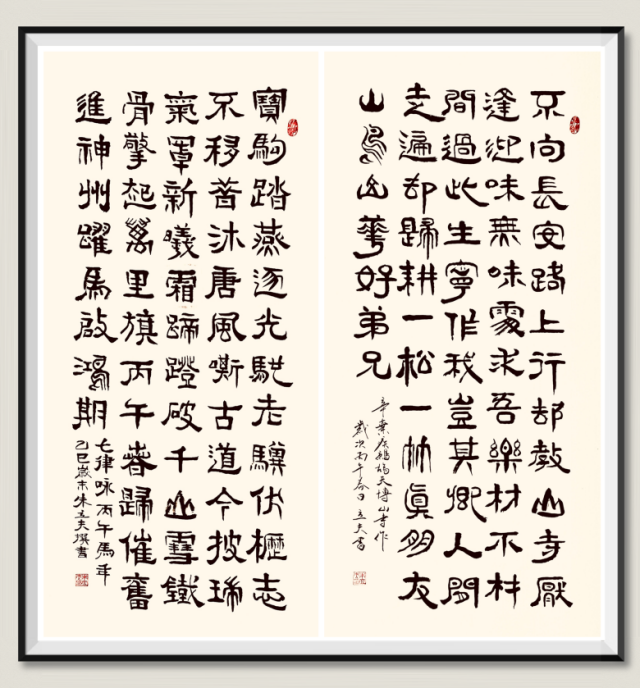 不向長安路上行却教山寺厭
逢迎味無味處求吾樂材不材
間過此生寧作我豈其卿人間
走遍却歸耕一松一竹真朋友
山鳥山華好弟兄
辛棄疾鷓鴣天博山寺作
歲次丙午春日立夫書
寶駒踏燕逐光馳老驥伏櫪志
不移昔沐唐風嘶古道今披瑞
氣罩新曦霜蹄蹬破千山雪鐵
骨擎起萬里旗丙午春歸催奮
進神州躍馬啟鴻期
七律咏丙午馬年
乙巳歲末朱立夫撰書